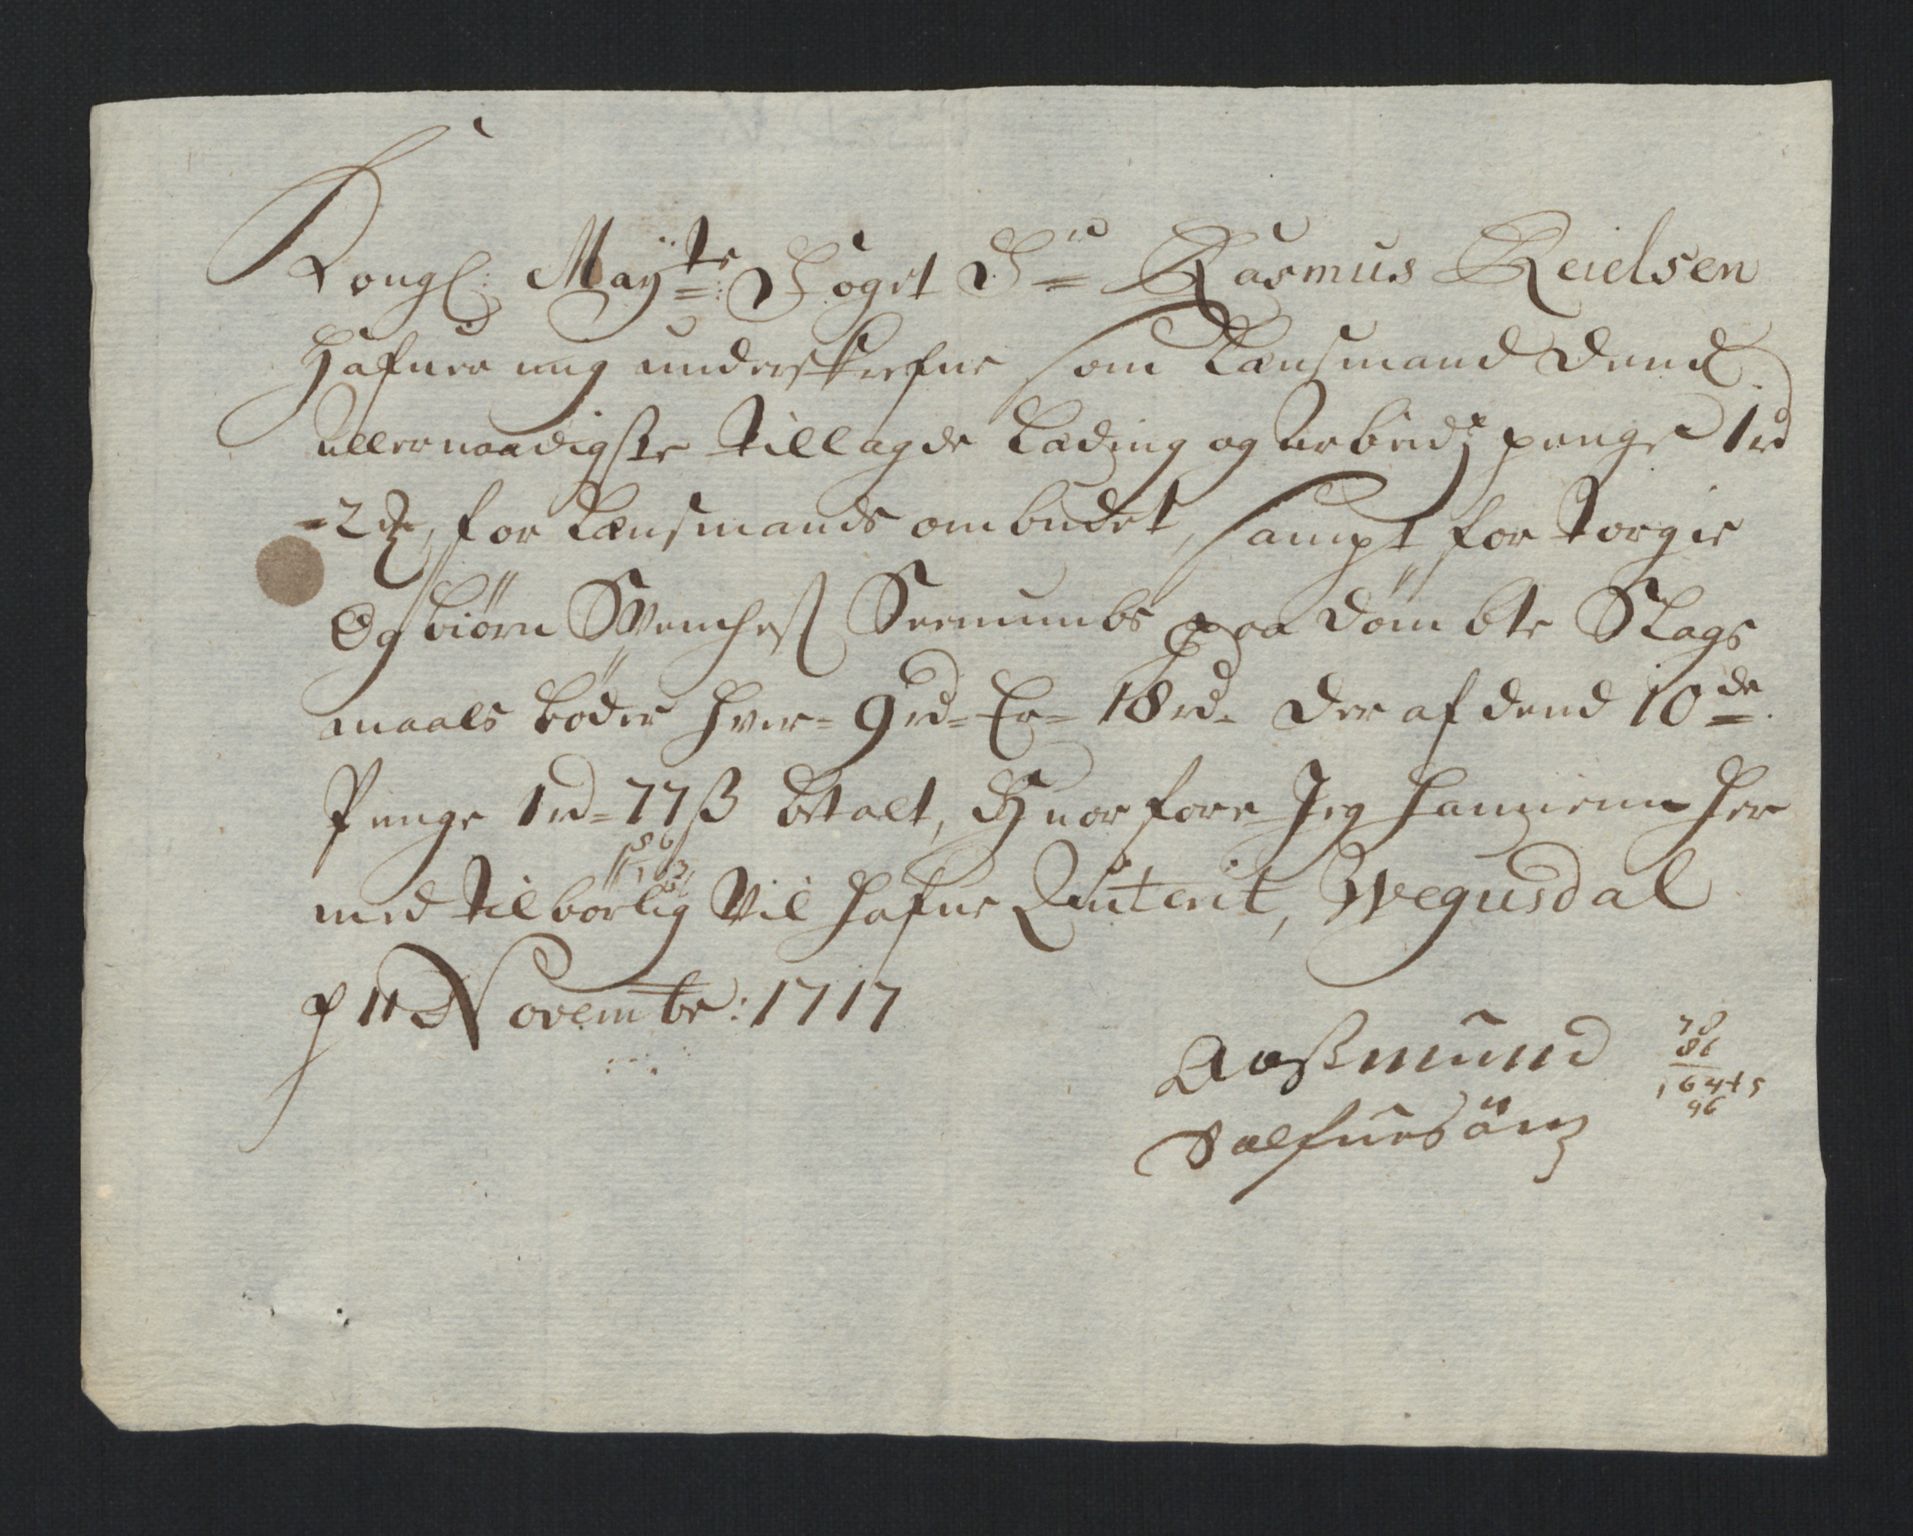 Kongl: Mayts: Foget Sr Rasmus Keielsen
Hafuer mig underskrefne som Lænsmand dend
allernaadigste tillagde Lading og arbeids penge 1 rd
=2 , for Lænsmands ombudet, sampt for Torgie
Og biørn Swenches paa dømbte Slags
maals bøder hver= 9 rd= Er= 18 rd= der af dend 10de
Penge 1 rd= 77 ß betalt, Huorfore Jeg hannem her
med tilbørlig Vil hafue Quiterit, Wegusdal
p 11 Novembr: 1717
Aaßmund
Salfuesøn
78
86
164
96